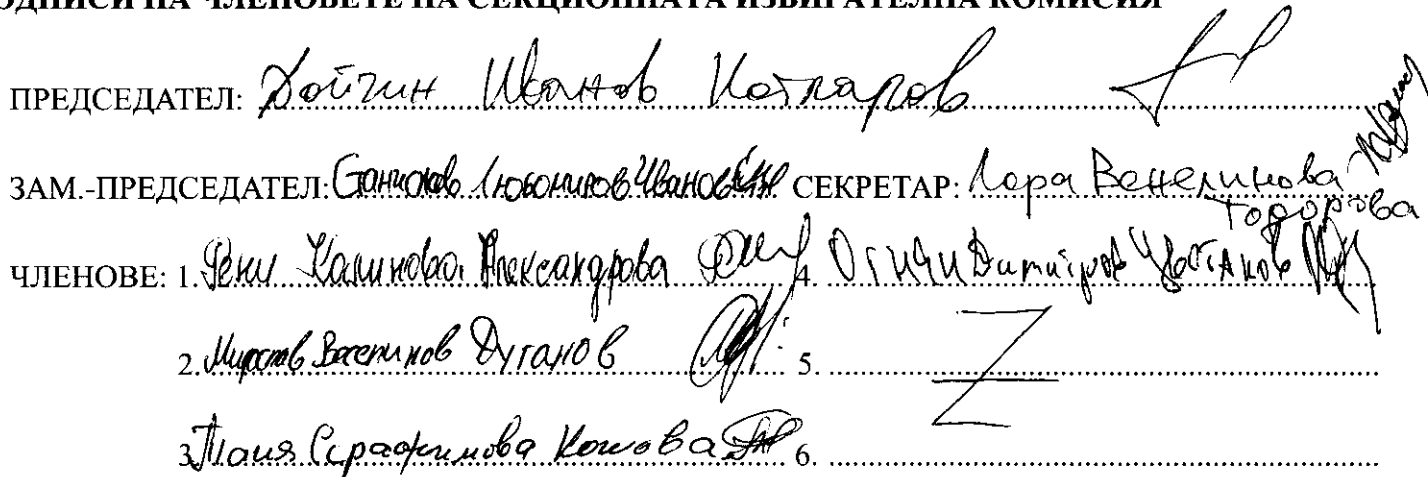 ПОДПИСИ НА ЧЛЕНОВЕТЕ НА СЕКЦИОННАТА ИЗБИРАТЕЛНА КОМИСИЯ
ПРЕДСЕДАТЕЛ: Дойчин Иванов Котларов
ЗАМ.-ПРЕДСЕДАТЕЛ: Любомиров Иванов СЕКРЕТАР: Лора Венелинова Тодорова
ЧЛЕНОВЕ: 1. Рени Калинова Александрова 4. Огнян Димитров Цветанов
2. Мирослав Веселинов Дуганов 5.
3. Таня Серафимова Колова 6.